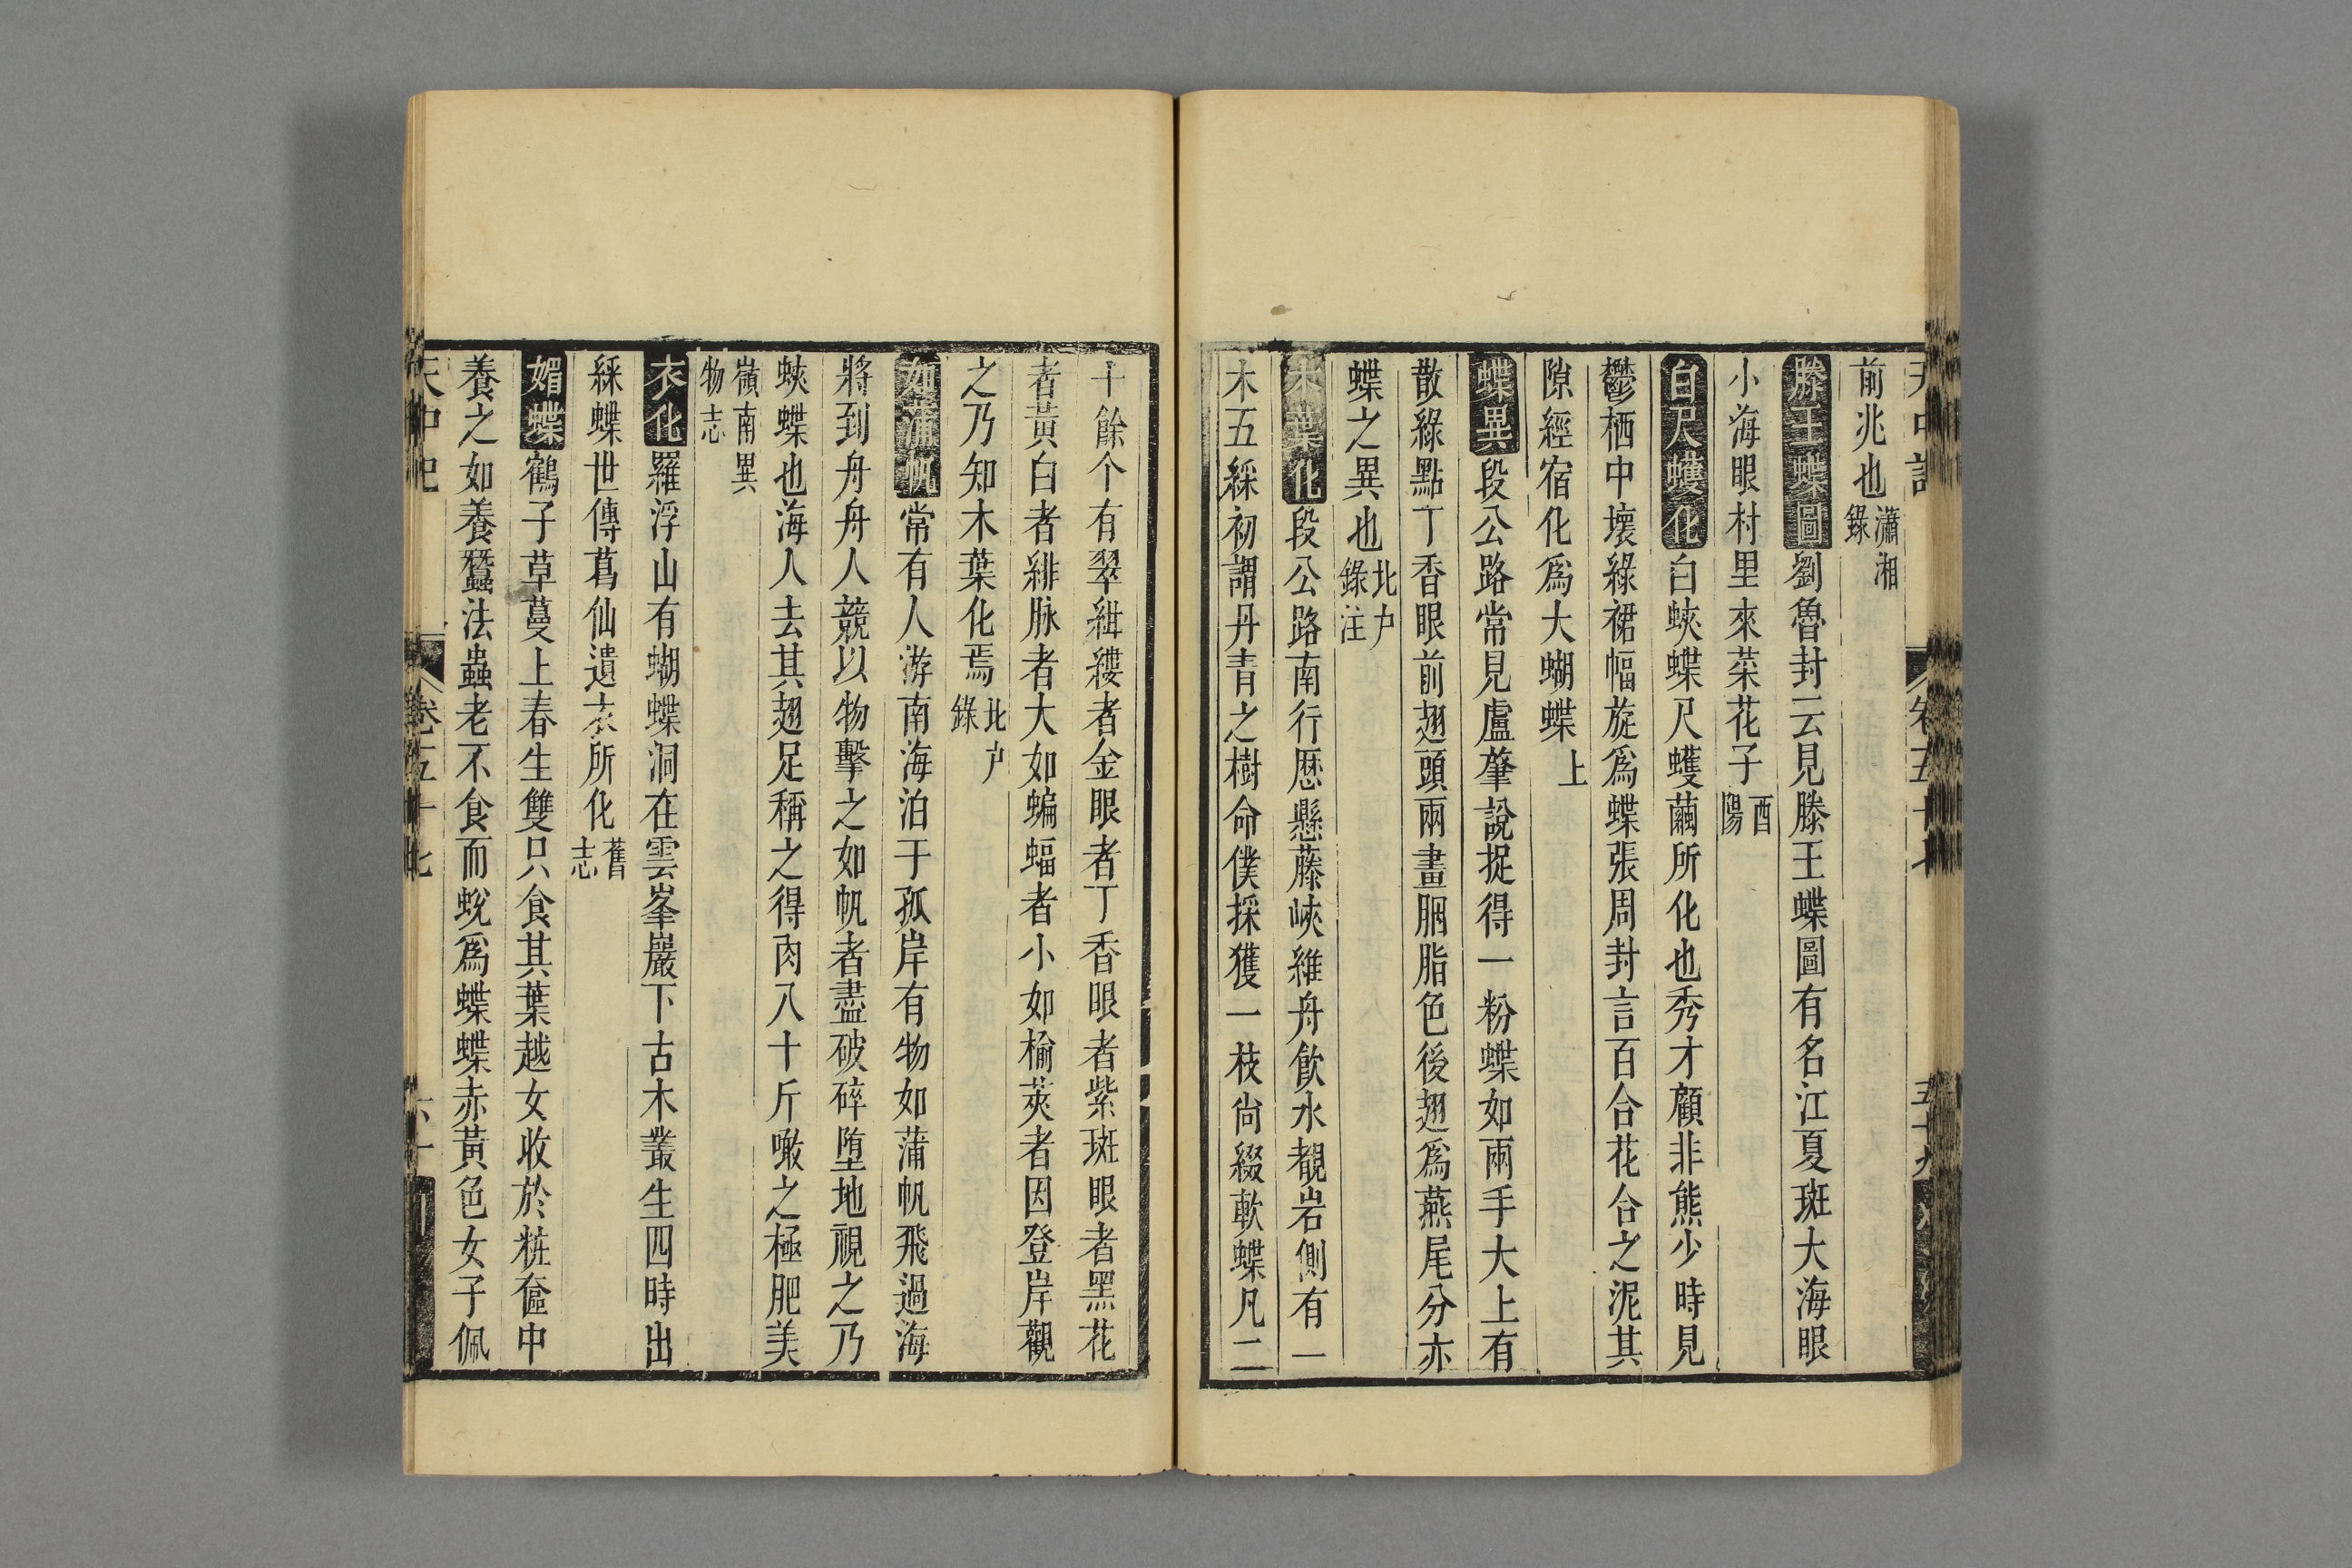 前兆也瀟湘錄
滕王蝶圖劉魯封云見滕王蝶圖有名江夏斑大海眼
小海眼村里來菜花子酉陽
白尺蠖化白蛺蝶尺蠖繭所化也秀才顧非熊少時見
鬱栖中壞綠裙幅旋爲蝶張周封言百合花合之泥其
隙經宿化爲大蝴蝶上
蝶異段公路常見盧肇說捉得一粉蝶如兩手大上有
散綠點丁香眼前翅頭兩畫胭脂色後翅爲燕尾分亦
蝶之異也北户錄注
木葉化段公路南行歷懸藤峽維舟飲水覩岩側有一
木五綵初謂丹青之樹命僕採獲一枝尙綴軟蝶凡二
十餘个有翠紺縷者金眼者丁香眼者紫斑眼者黑花
者黃白者緋脉者大如蝙蝠者小如榆莢者因登岸觀
之乃知木葉化焉北户錄
如蒲帆常有人游南海泊于孤岸有物如蒲帆飛過海
將到舟舟人競以物擊之如帆者盡破碎墮地視之乃
蛺蝶也海人去其翅足稱之得肉八十斤噉之極肥美
嶺南異物志
衣化羅浮山有蝴蝶洞在雲峯巖下古木叢生四時出
綵蝶世傳葛仙遺衣所化舊志
媚蝶鶴子草蔓上春生雙只食其葉越女收於粧奩中
養之如養蠶法蟲老不食而蛻爲蝶蝶赤黃色女子佩